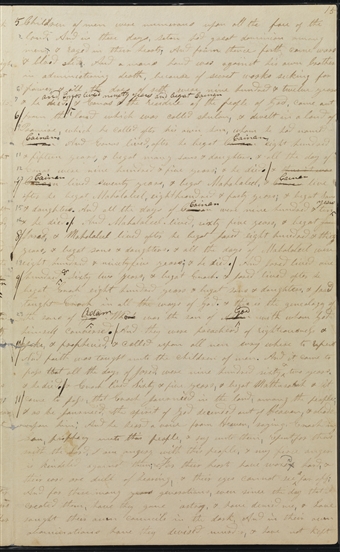 15
5 Children of men were numerous upon all the face of the
Land. And in those days, Satan had great dominion among
men, & raged in their hearts. And from thence forth came wars
& blood shed. And a mans hand was against his own brother
in administering death, because of secret works seeking for
power. all the days of Seth were nine hundred & twelve years
and Enos lived ninety years and begat Cainan
& he died & Enos & the residue of the people of God, came out
from the land which was called Shulon, & dwelt in a land of
promise, which he called after his own Son, whom he had named
Cainan Cainan
And Enos lived, after he begat eight hundred
& fifteen years, & begat sons & daughters. And all the days of
Enos were nine hundred & five years, & he died
Cainan
lived seventy years, & begat Mahalalel, & Cainan lived
after he begat Mahalalel, eight hundred & forty years, & begat sons
& daughters. And all the days of Cainan were nine hundred & ten years
& he died. And Mahalalel lived sixty five years, & begat
Jared, & Mahalalel lived after he begat Jared eight hundred & thirty
years, & begat sons & daughters. & all the days of Mahalalel were
eight hundred & ninety five years, & he died. And Jared lived one
hundred & sixty two years, & begat Enoch. & Jared lived after he
begat Enoch eight hundred years, & begat sons & daughters, & Jared
taught Enoch in all the ways of God. & this is the genealogy of
the sons of Adam who was the son of God with whom God
himself conversed. And they were preachers of righteousness &
spake, & prophesied & called upon all men every where to repent
And faith was taught unto the Children of men. And it came to
pass that all the days of Jared were nine hundred sixty two years,
& he died & Enoch lived sixty & five years, & begat Mathuselah & it
came to pass, that Enoch journeyed in the land, among the people,
& as he journeyed the spirit of God descended out of Heaven, & abode
upon him; And he heard a voice from Heaven, saying: Enoch my
Son, prophesy unto this people, & say unto them, repent for thus
saith the Lord, I am angry with this people, & my fierce anger
is kindled against them; For their hearts have waxed hard, &
their ears are dull of hearing, & their eyes cannot see far off;
And for these many generations, ever since the day that I
created them, have they gone astray, & have denied me, & have
sought their own counsels in the dark, And in their own
abominations have they devised murder, & have not kept